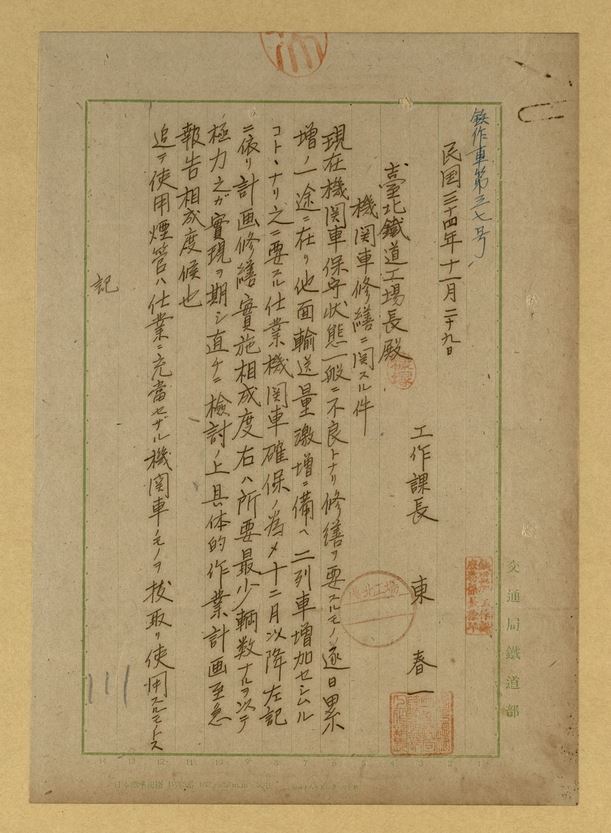 鉄作車第三七号
民国三十四年十一月二十九日
工作課長 東 春一
臺北鐵道工場長殿
機関車修繕ニ関スル件
現在機関車保守状態一般ニ不良トナリ修繕ヲ要スルモノ逐日累
増ノ一途ニ在リ他面輸送量激増ニ備ヘ二列車増加セシムル
コトトナリ之ニ要スル仕業機関車確保ノ為メ十二月以降左記
ニ依リ計画修繕実施相成度右ハ所要最少輌数ナルヲ以テ
極力之ガ實現ヲ期シ直チニ檢討ノ上具体的作業計画至急
報告相成度候也
追テ使用煙管ハ仕業ニ充當セザル機関車ノモノヲ抜取リ使用スルモノトス
記
交通局鐵道部